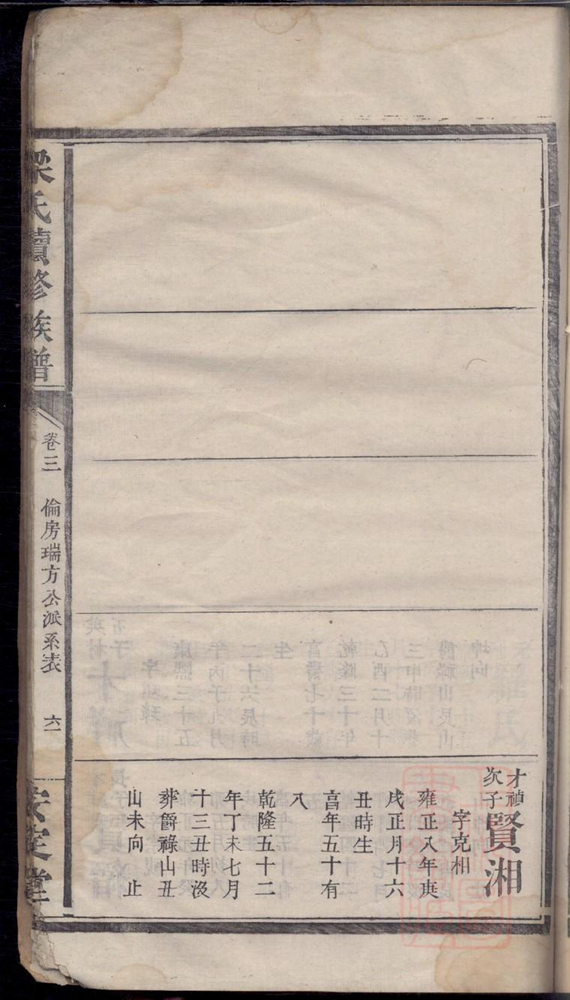 才禎次子賢湘
字克相
雍正八年庚
戌正月十六
丑時生
享年五十有
八
乾隆五十二
年丁未七月
十三丑時沒
葬爵祿山丑
山未向　止
梁氏續修族譜
卷三　倫房瑞方公派系表　六一
安定堂